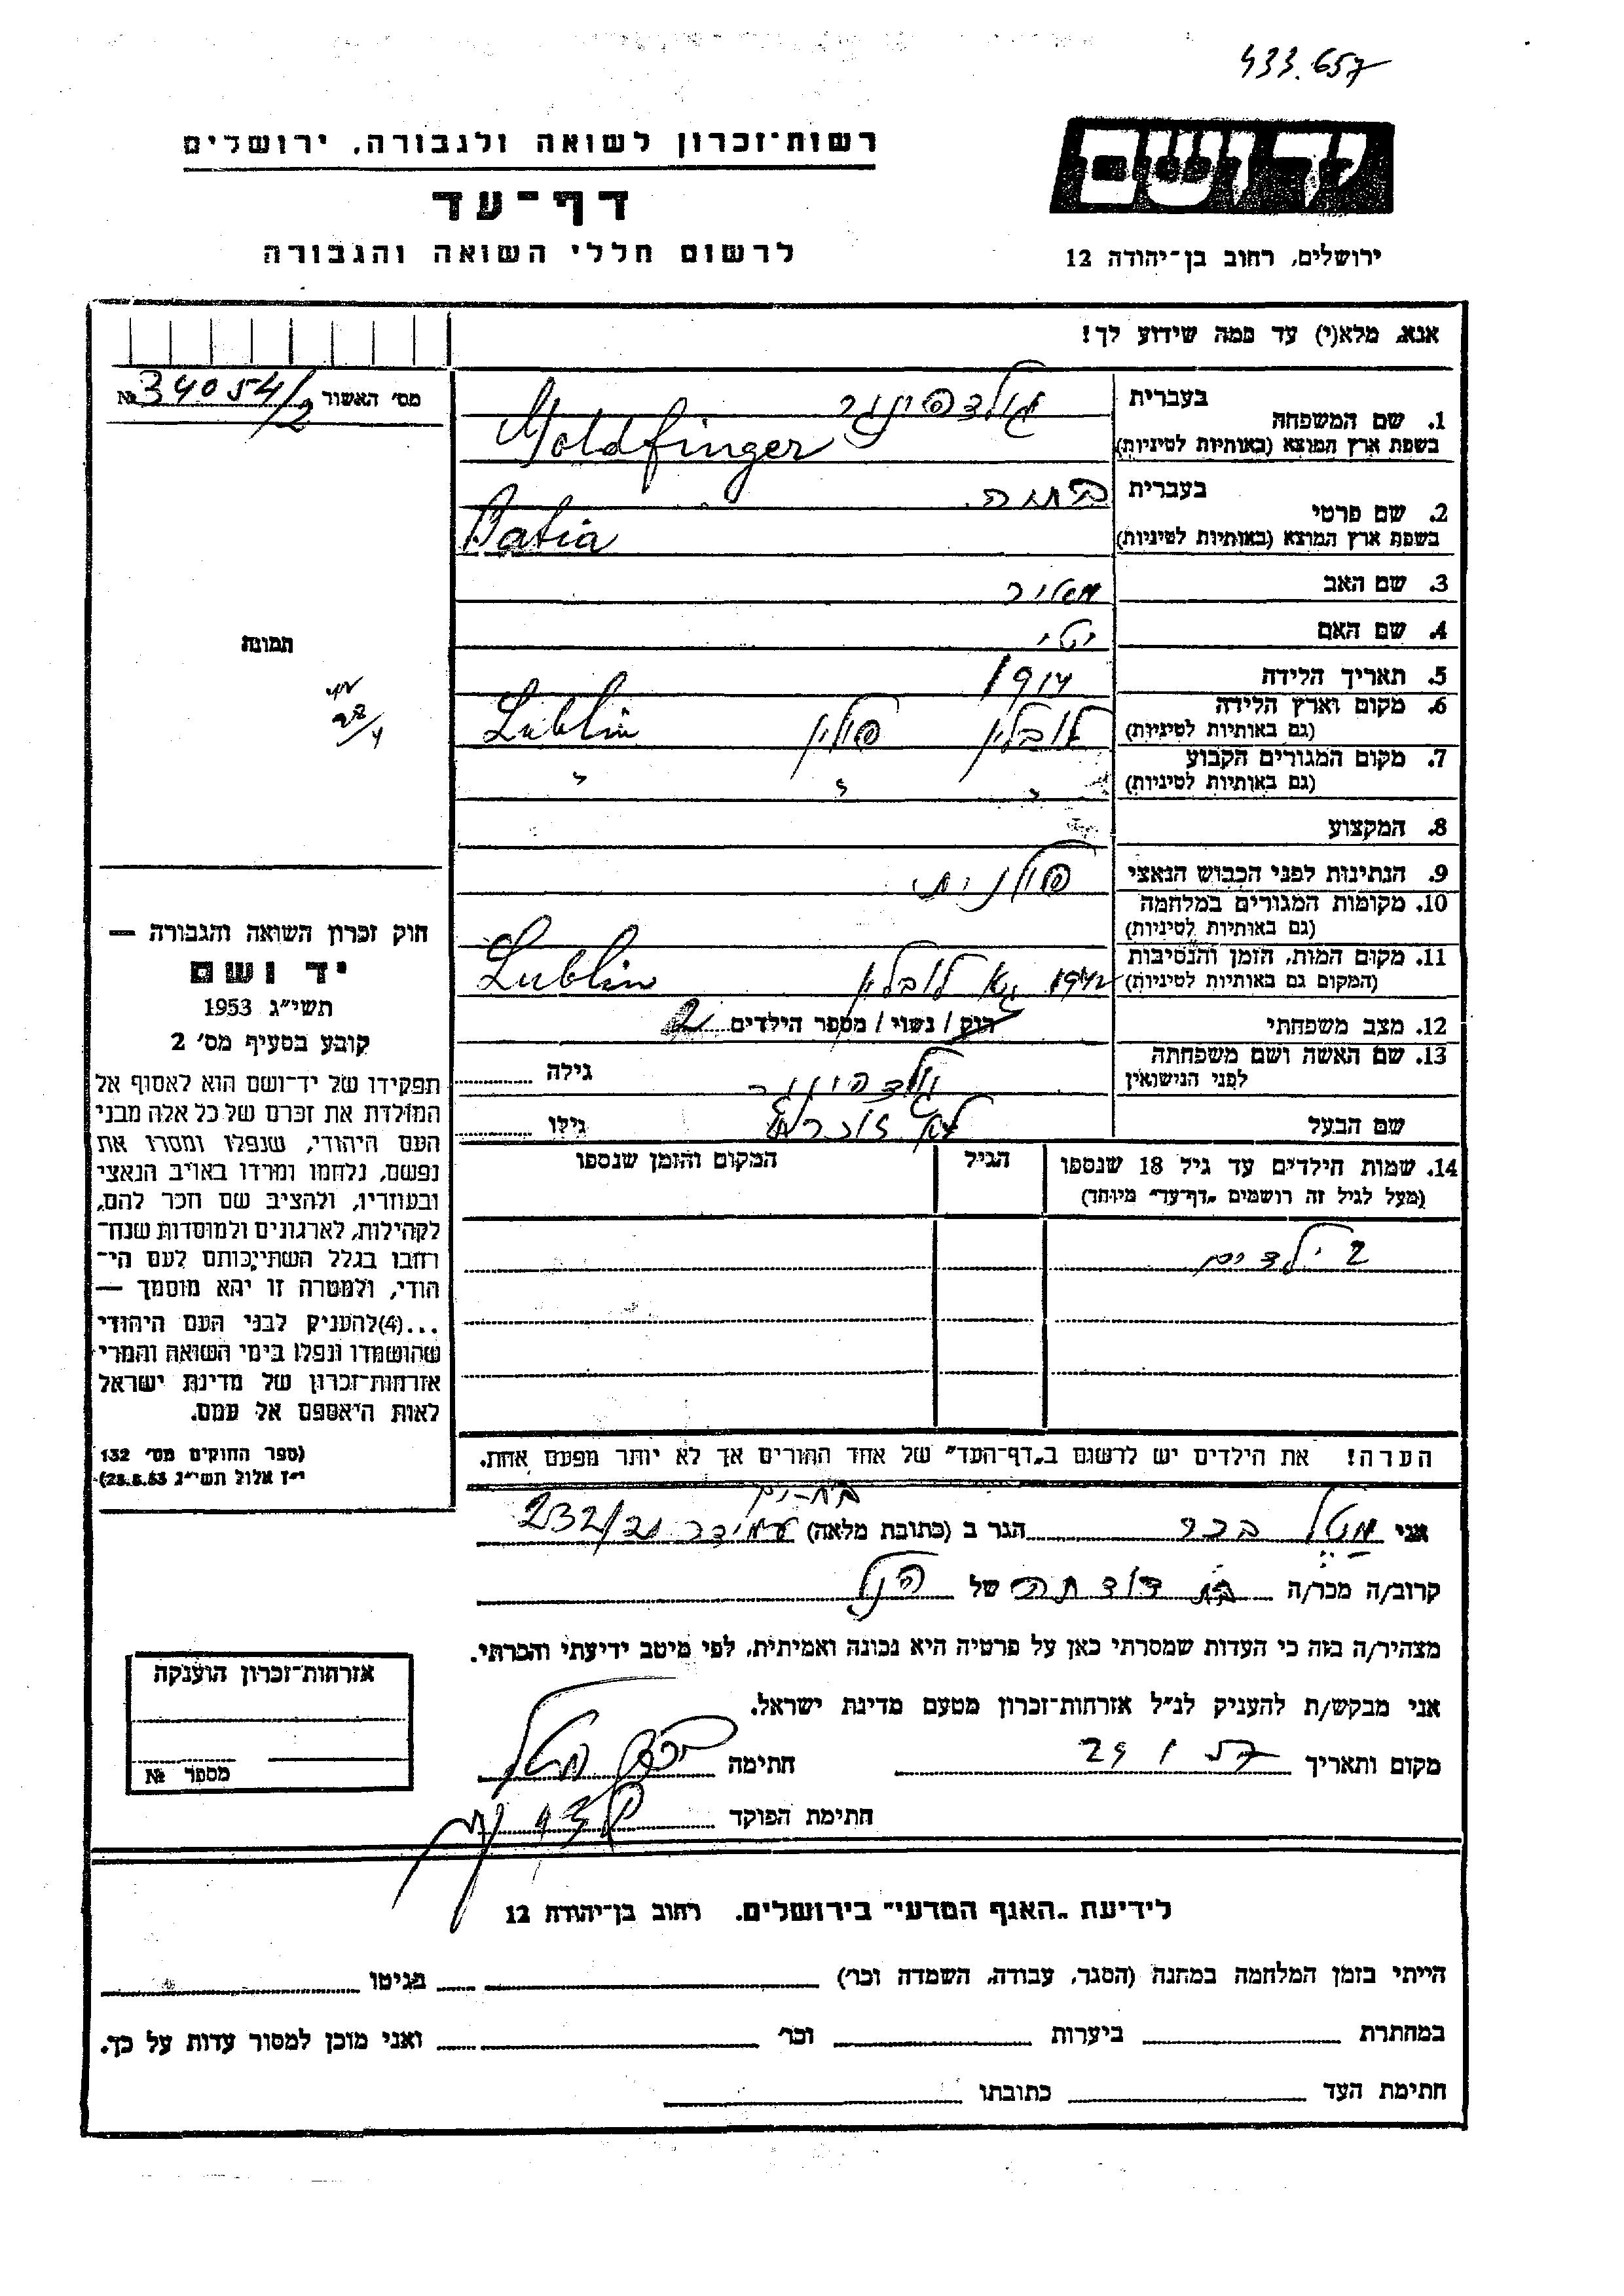 433.657
רשות־זכרון לשואה ולגבורה, ירושלים
דף־עד
לרשום חללי השואה והגבורה
יד ושם
ירושלים, רחוב בן־יהודה 12
אנא, מלא(י) עד כמה שידוע לך!
מס׳ האשור № 34054/2
תמונה
1. שם המשפחה
בעברית גולדפינגר
בשפת ארץ המוצא (באותיות לטיניות) Goldfinger
2. שם פרטי
בעברית בתיה
בשפת ארץ המוצא (באותיות לטיניות) Batia
3. שם האב מאיר
4. שם האם יטי
5. תאריך הלידה 1914
6. מקום וארץ הלידה
(גם באותיות לטיניות) לובלין פולין Lublin
7. מקום המגורים הקבוע
(גם באותיות לטיניות) " " "
8. המקצוע
9. הנתינות לפני הכבוש הנאצי פולנית
10. מקומות המגורים במלחמה
(גם באותיות לטיניות)
11. מקום המות, הזמן והנסיבות
(המקום גם באותיות לטיניות) 1942 לובלין Lublin
12. מצב משפחתי רוק / נשוי / מספר הילדים 2
13. שם האשה ושם משפחתה
לפני הנישואין גילה
שם הבעל גילו
14. שמות הילדים עד גיל 18 שנספו הגיל המקום והזמן שנספו
(מעל לגיל זה רושמים „דף־עד״ מיוחד)
2 ילדים
הערה! את הילדים יש לרשום ב„דף־העד״ של אחד ההורים אך לא יותר מפעם אחת.
חוק זכרון השואה והגבורה —
יד ושם
תשי״ג 1953
קובע בסעיף מס׳ 2
תפקידו של יד־ושם הוא לאסוף אל
המולדת את זכרם של כל אלה מבני
העם היהודי, שנפלו ומסרו את
נפשם, נלחמו ומרדו באויב הנאצי
ובעוזריו, ולהציב שם וזכר להם,
לקהילות, לארגונים ולמוסדות שנח־
רבו בגלל השתייכותם לעם הי־
הודי, ולמטרה זו יהא מוסמך —
...(4)להעניק לבני העם היהודי
שהושמדו ונפלו בימי השואה והמרי
אזרחות־זכרון של מדינת ישראל
לאות היאספם אל עמם.
(ספר החוקים מס׳ 132
י״ז אלול תשי״ג 28.8.53)
בת-ים
אני הגר ב (כתובת מלאה) עמידר 232/21
קרוב/ה מכר/ה בת דודתה של הנ״ל
מצהיר/ה בזה כי העדות שמסרתי כאן על פרטיה היא נכונה ואמיתית, לפי מיטב ידיעתי והכרתי.
אני מבקש/ת להעניק לנ״ל אזרחות־זכרון מטעם מדינת ישראל.
מקום ותאריך 29 1 57 חתימה
חתימת הפוקד
אזרחות־זכרון הוענקה
מספר №
לידיעת „האגף המדעי״ בירושלים. רחוב בן־יהודה 12
הייתי בזמן המלחמה במחנה (הסגר, עבודה, השמדה וכו׳) בגיטו
במחתרת ביערות וכו׳ ואני מוכן למסור עדות על כך.
חתימת העד כתובתו